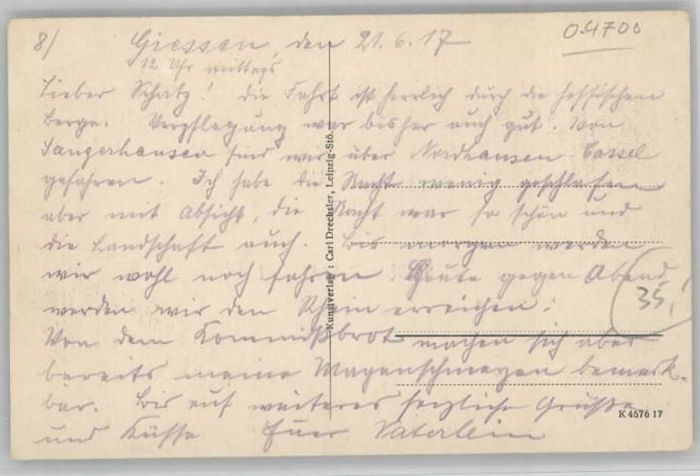 8/ Giessen, den 21.6.17
12 Uhr mittags
04700
Lieber Schatz! Die Fahrt ist herrlich durch die hessischen
Berge. Verpflegung war bisher auch gut. Von
Sangerhausen sind wir über Nordhausen Cassel
gefahren. Ich habe die Nacht wenig geschlafen
aber mit Absicht, die Nacht war so schön und
die Landschaft auch. Bis morgen werden
wir wohl noch fahren. Heute gegen Abend
werden wir den Rhein erreichen.
35,
Von dem Kommißbrot machen sich aber
bereits meine Magenschmerzen bemerk-
bar. Bis auf weiteres herzliche Grüße
und Küsse Euer Vaterlein
Kunstverlag: Carl Drechsler, Leipzig-Stö.
K 4676 17